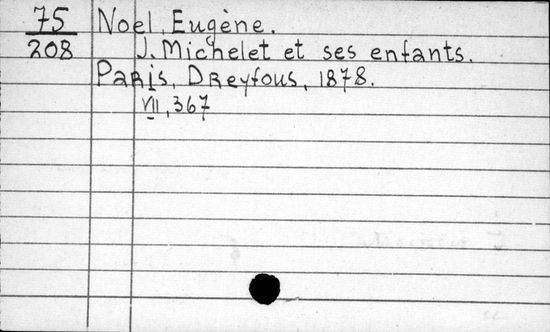 75 Noel, Eugène.
208 J. Michelet et ses enfants.
Paris, Dreyfous, 1878.
VII, 367